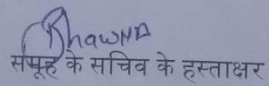 Bhawna
समूह के सचिव के हस्ताक्षर